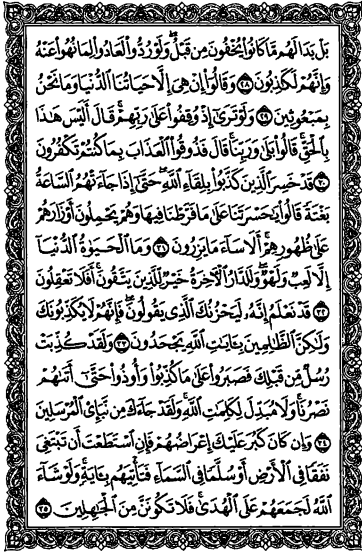 بَلْ بَدَا لَهُم مَّا كَانُوا۟ يُخْفُونَ مِن قَبْلُ ۖ وَلَوْ رُدُّوا۟ لَعَادُوا۟ لِمَا نُهُوا۟ عَنْهُ
وَإِنَّهُمْ لَكَٰذِبُونَ ٢٨ وَقَالُوٓا۟ إِنْ هِىَ إِلَّا حَيَاتُنَا ٱلدُّنْيَا وَمَا نَحْنُ
بِمَبْعُوثِينَ ٢٩ وَلَوْ تَرَىٰٓ إِذْ وُقِفُوا۟ عَلَىٰ رَبِّهِمْ ۚ قَالَ أَلَيْسَ هَٰذَا
بِٱلْحَقِّ ۚ قَالُوا۟ بَلَىٰ وَرَبِّنَا ۚ قَالَ فَذُوقُوا۟ ٱلْعَذَابَ بِمَا كُنتُمْ تَكْفُرُونَ
٣٠ قَدْ خَسِرَ ٱلَّذِينَ كَذَّبُوا۟ بِلِقَآءِ ٱللَّهِ ۖ حَتَّىٰٓ إِذَا جَآءَتْهُمُ ٱلسَّاعَةُ
بَغْتَةً قَالُوا۟ يَٰحَسْرَتَنَا عَلَىٰ مَا فَرَّطْنَا فِيهَا وَهُمْ يَحْمِلُونَ أَوْزَارَهُمْ
عَلَىٰ ظُهُورِهِمْ ۚ أَلَا سَآءَ مَا يَزِرُونَ ٣١ وَمَا ٱلْحَيَوٰةُ ٱلدُّنْيَآ
إِلَّا لَعِبٌ وَلَهْوٌ ۖ وَلَلدَّارُ ٱلْءَاخِرَةُ خَيْرٌ لِّلَّذِينَ يَتَّقُونَ ۗ أَفَلَا تَعْقِلُونَ
٣٢ قَدْ نَعْلَمُ إِنَّهُۥ لَيَحْزُنُكَ ٱلَّذِى يَقُولُونَ ۖ فَإِنَّهُمْ لَا يُكَذِّبُونَكَ
وَلَٰكِنَّ ٱلظَّٰلِمِينَ بِـَٔايَٰتِ ٱللَّهِ يَجْحَدُونَ ٣٣ وَلَقَدْ كُذِّبَتْ
رُسُلٌ مِّن قَبْلِكَ فَصَبَرُوا۟ عَلَىٰ مَا كُذِّبُوا۟ وَأُوذُوا۟ حَتَّىٰٓ أَتَىٰهُمْ
نَصْرُنَا ۚ وَلَا مُبَدِّلَ لِكَلِمَٰتِ ٱللَّهِ ۚ وَلَقَدْ جَآءَكَ مِن نَّبَإِى۟ ٱلْمُرْسَلِينَ
٣٤ وَإِن كَانَ كَبُرَ عَلَيْكَ إِعْرَاضُهُمْ فَإِنِ ٱسْتَطَعْتَ أَن تَبْتَغِىَ
نَفَقًا فِى ٱلْأَرْضِ أَوْ سُلَّمًا فِى ٱلسَّمَآءِ فَتَأْتِيَهُم بِـَٔايَةٍ ۚ وَلَوْ شَآءَ
ٱللَّهُ لَجَمَعَهُمْ عَلَى ٱلْهُدَىٰ ۚ فَلَا تَكُونَنَّ مِنَ ٱلْجَٰهِلِينَ ٣٥